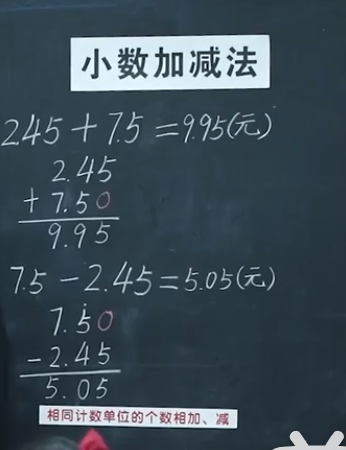 小数加减法
2.45+7.5=9.95(元)
2.45
+7.50
9.95
7.5-2.45=5.05(元)
7.50
-2.45
5.05
相同计数单位的个数相加、减